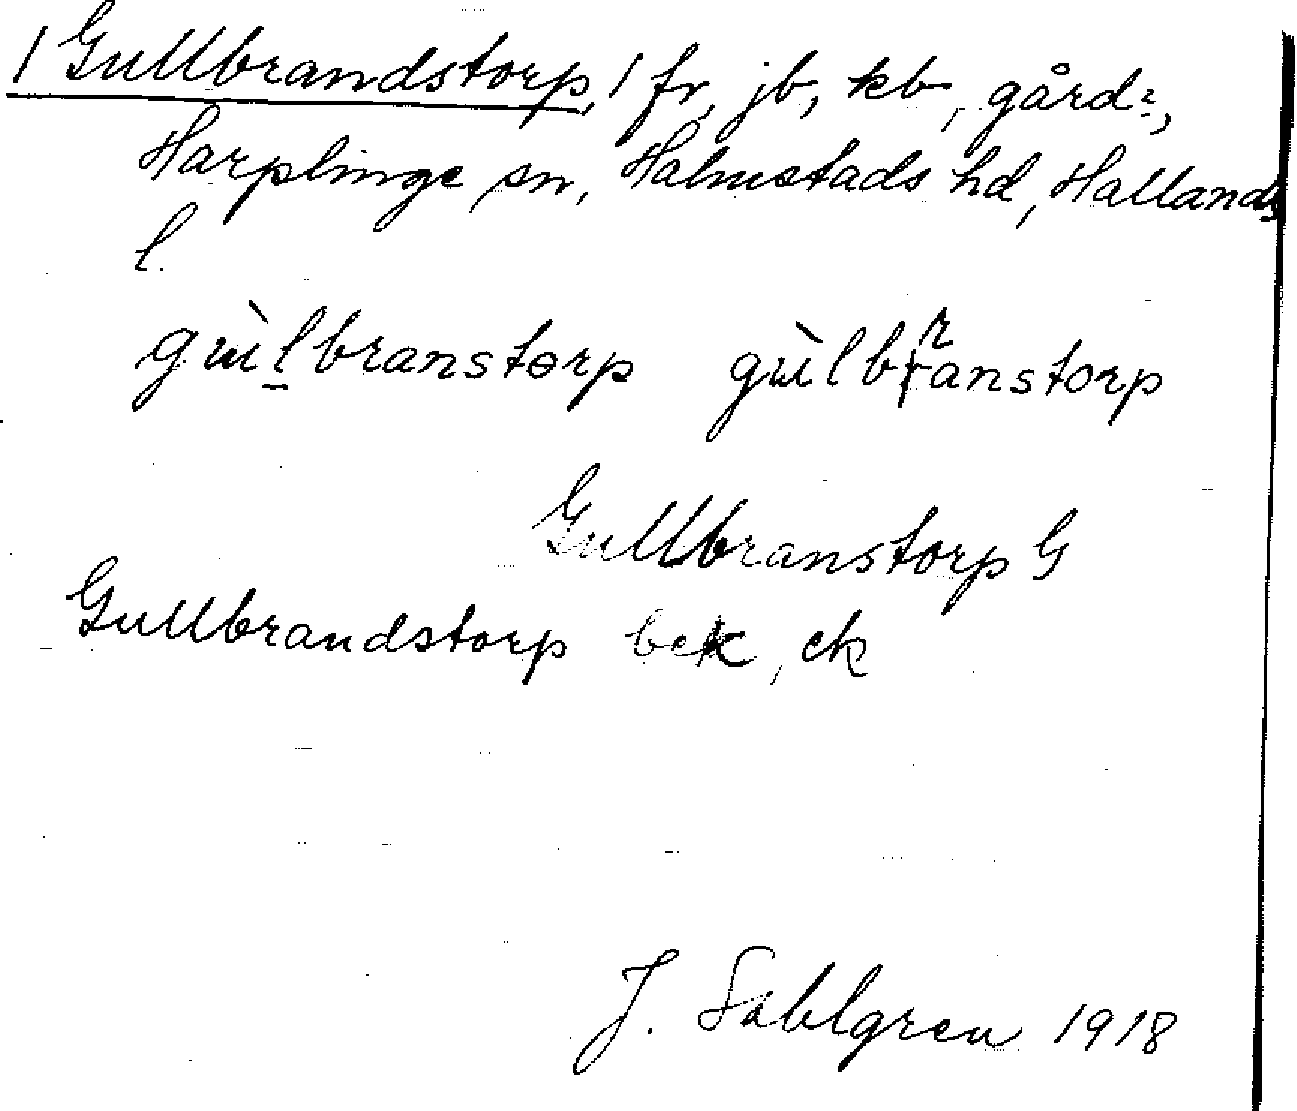 /Gullbrandstorp,/ fr, jb, kb, gård:,
Harplinge sn, Halmstads hd, Hallands
l.
gɯ̀lbranstɵrp gɯ̀lbranstorp
Gullbranstorp G
Gullbrandstorp bek, ek
J. Sahlgren 1918